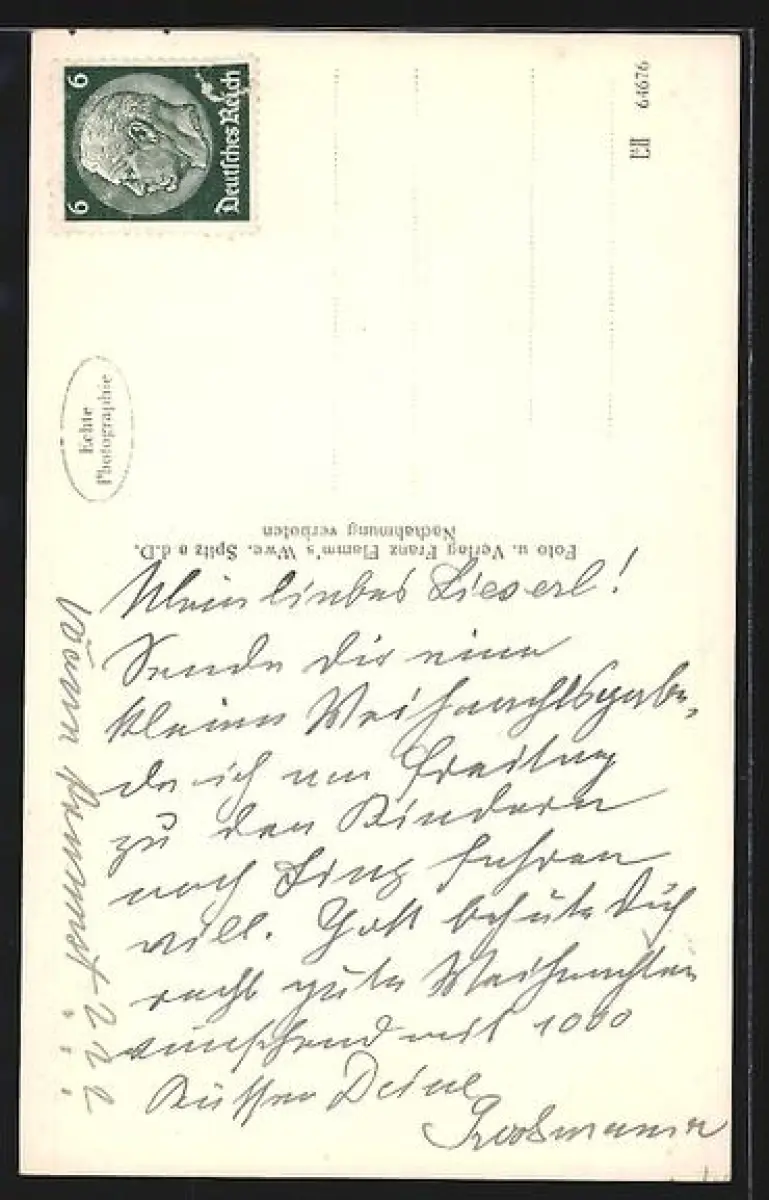 6
6
Deutsches Reich
64676
Echte
Photographie
Foto u. Verlag Franz Flamm's Wwe. Spitz a d.D.
Nachahmung verboten
Mein liebes Lieserl!
Sende dir eine
kleine Weihnachtsgabe,
da ich am Freitag
zu den Kindern
nach Linz fahren
will. Gott behüte Dich
recht gute Weihnachten
wünschend mit 1000
Küssen Deine
Großmama
Wann kommst